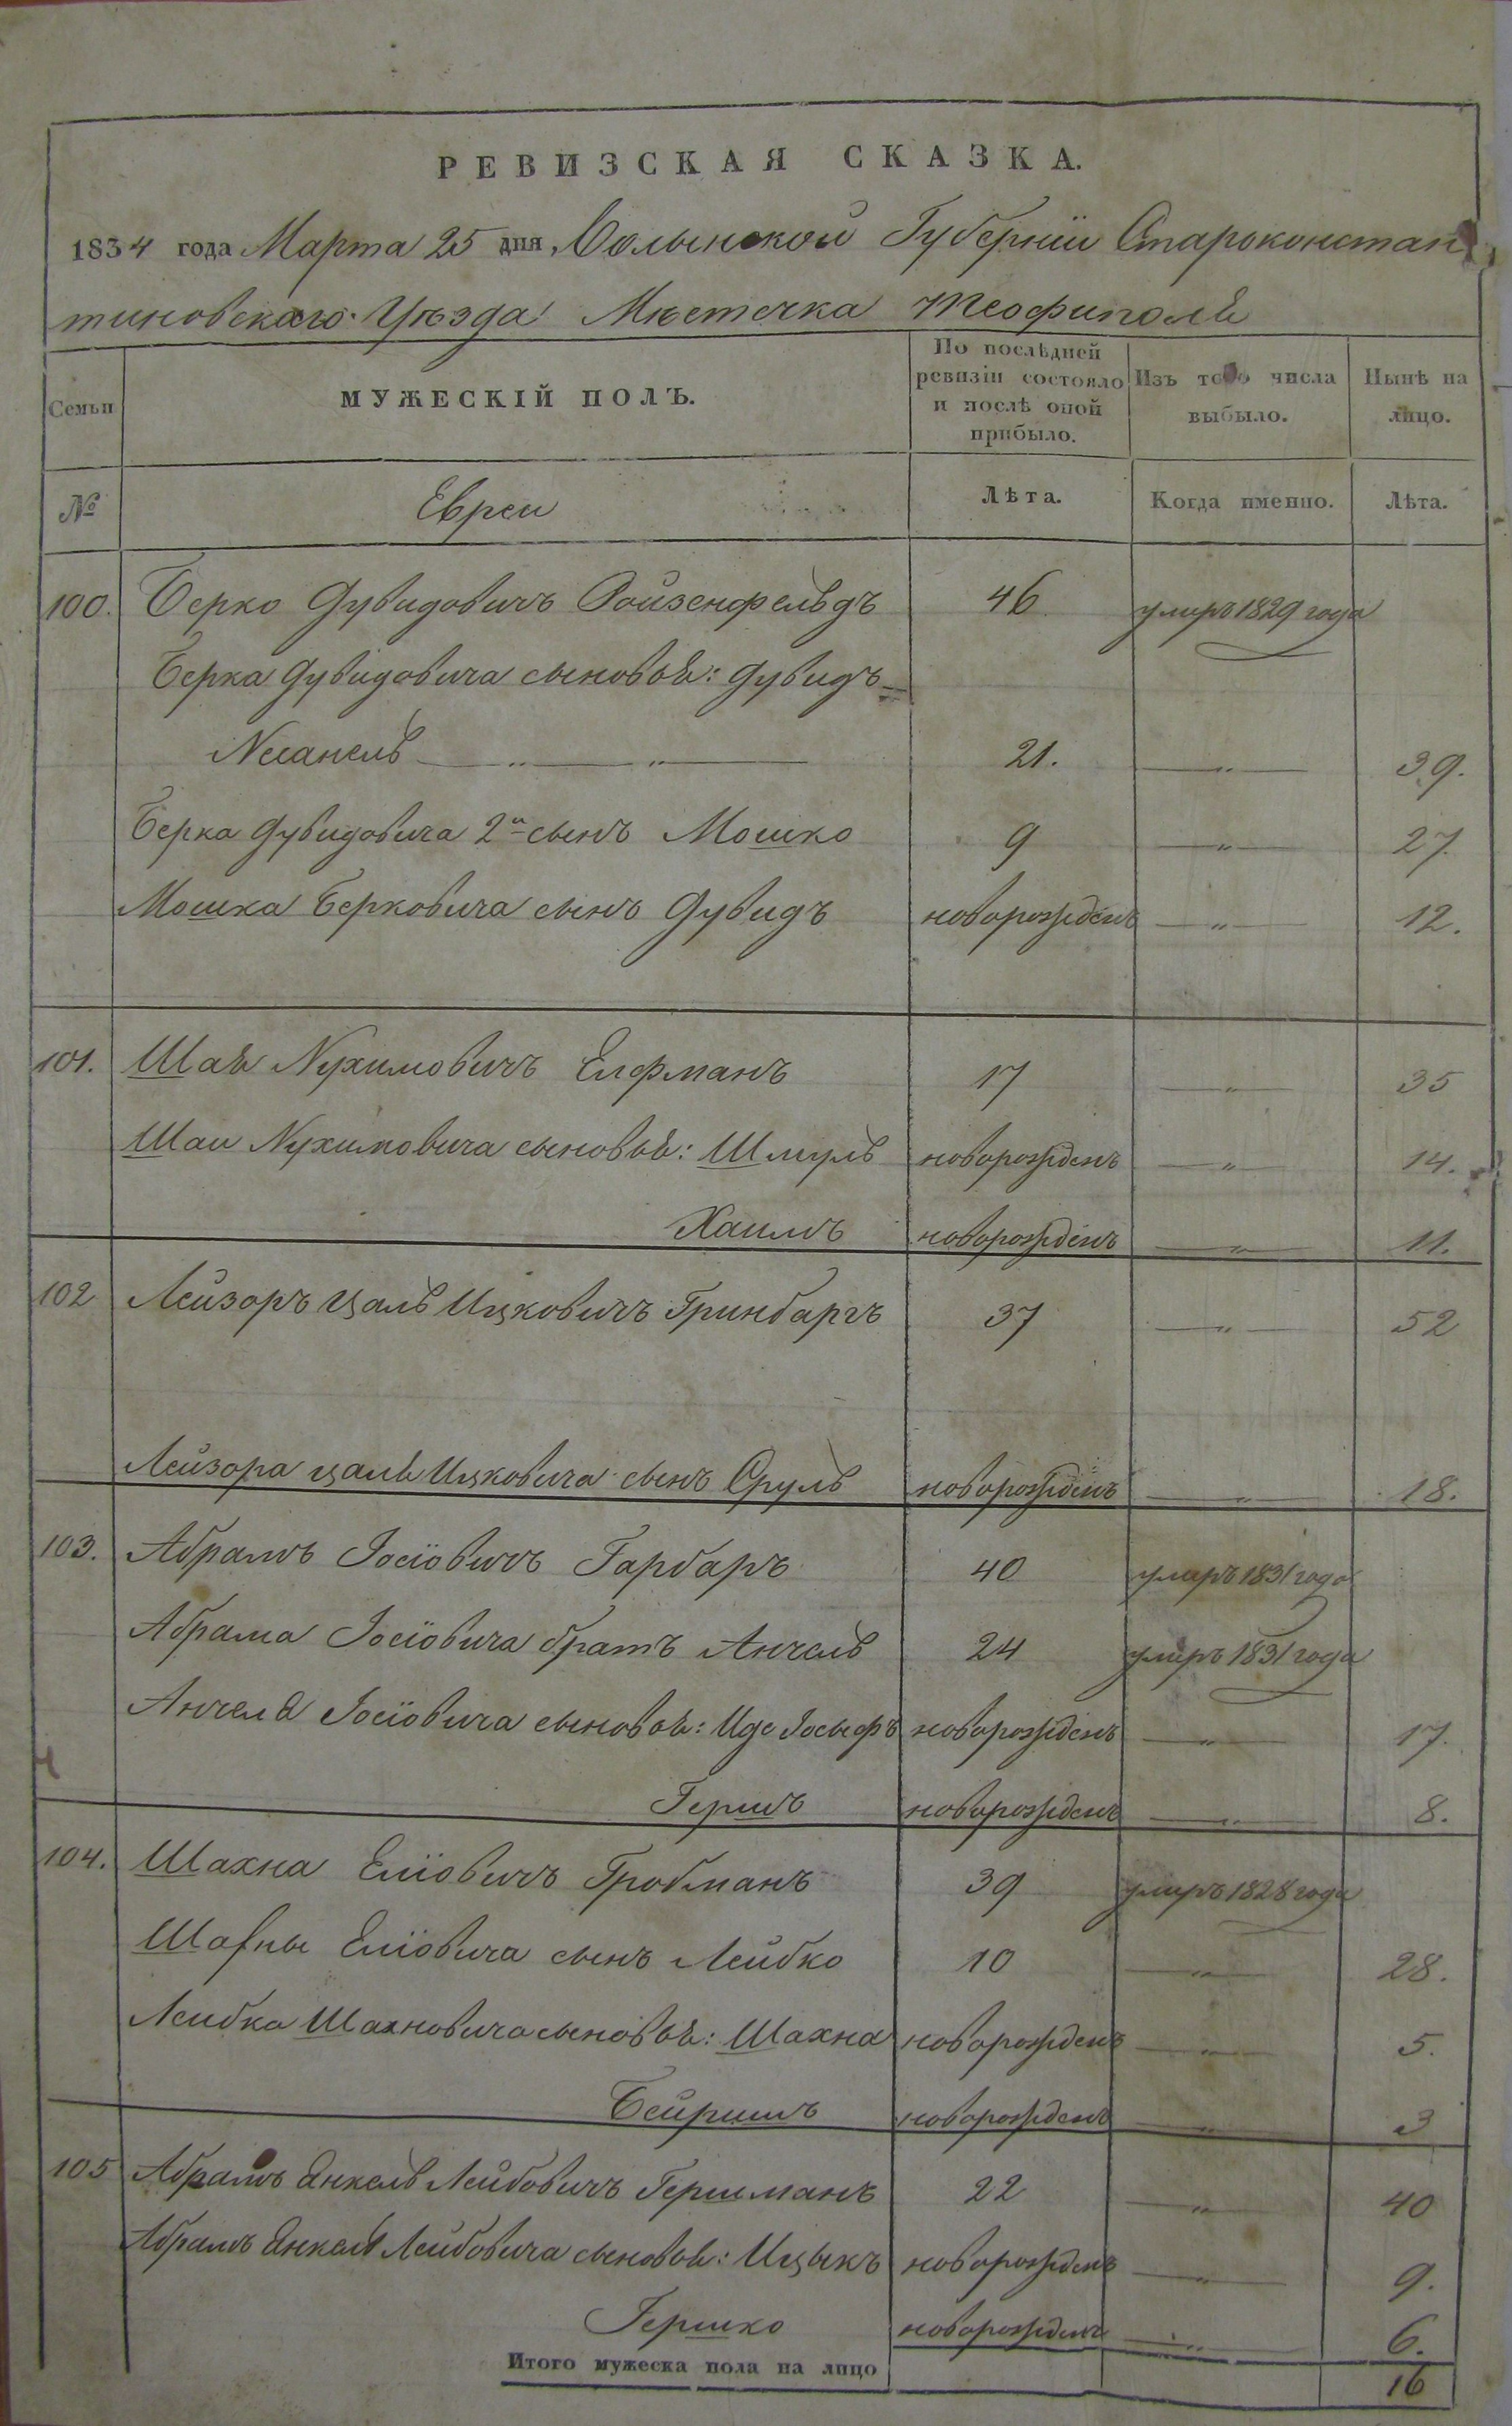 РЕВИЗСКАЯ СКАЗКА.
1834 года Марта 25 дня, Волынской Губернiи Староконстан
тиновскаго Уѣзда Мѣстечка Теофиполя
Семьи
МУЖЕСКІЙ ПОЛЪ.
По послѣдней ревизіи состояло и послѣ оной прибыло.
Изъ того числа выбыло.
Нынѣ на лицо.
№ Евреи Лѣта. Когда именно. Лѣта.
100. Берко Дувидовичъ Ройзенфельдъ 46 умеръ 1829 года
Берка Дувидовича сыновья: Дувидъ
Несанель — „ — „ — 21. — „ — 39.
Берка Дувидовича 2й сынъ Мошко 9 — „ — 27.
Мошка Берковича сынъ Дувидъ новорожденъ — „ — 12.
101. Шая Нухимовичъ Елфманъ 17 — „ — 35
Шаи Нухимовича сыновья: Шмуль новорожденъ — „ — 14.
Хаимъ новорожденъ — „ — 11.
102 Лейзоръ Цаль Ицковичъ Гринбаргъ 37 — „ — 52
Лейзора Цаля Ицковича сынъ Сруль новорожденъ — „ — 18.
103. Абрамъ Іосіовичъ Гарбаръ 40 умеръ 1831 года
Абрама Іосіовича братъ Анчель 24 умеръ 1831 года
Анчеля Іосіовича сыновья: Иде Іосыфъ новорожденъ — „ — 17.
Гершъ новорожденъ — „ — 8.
104. Шахна Еліовичъ Гробманъ 39 умеръ 1828 года
Шахны Еліовича сынъ Лейбко 10 — „ — 28.
Лейбка Шахновича сыновья: Шахна новорожденъ — „ — 5.
Бейришъ новорожденъ — „ — 3
105 Абрамъ Янкель Лейбовичъ Гершманъ 22 — „ — 40
Абрамъ Янкеля Лейбовича сыновья: Ицыкъ новорожденъ — „ — 9.
Гершко новорожденъ — „ — 6.
Итого мужеска пола на лицо 16